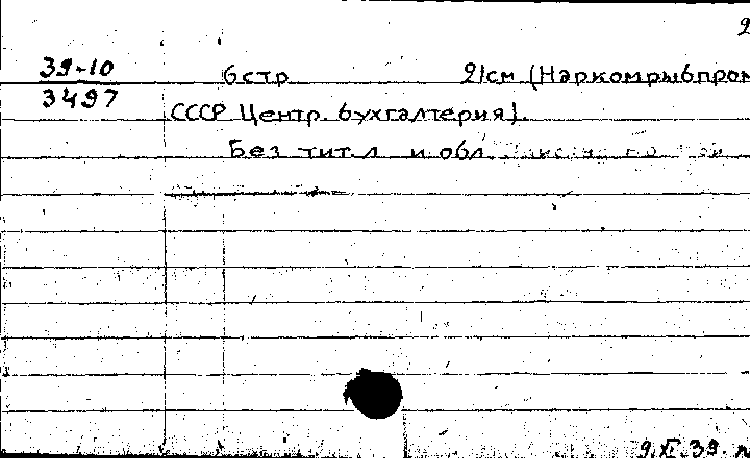 2
39-10
3497
6 стр 21 см (Наркомрыбпром
СССР Центр. бухгалтерия).
Без тит. л и обл.
9.XI.39. л